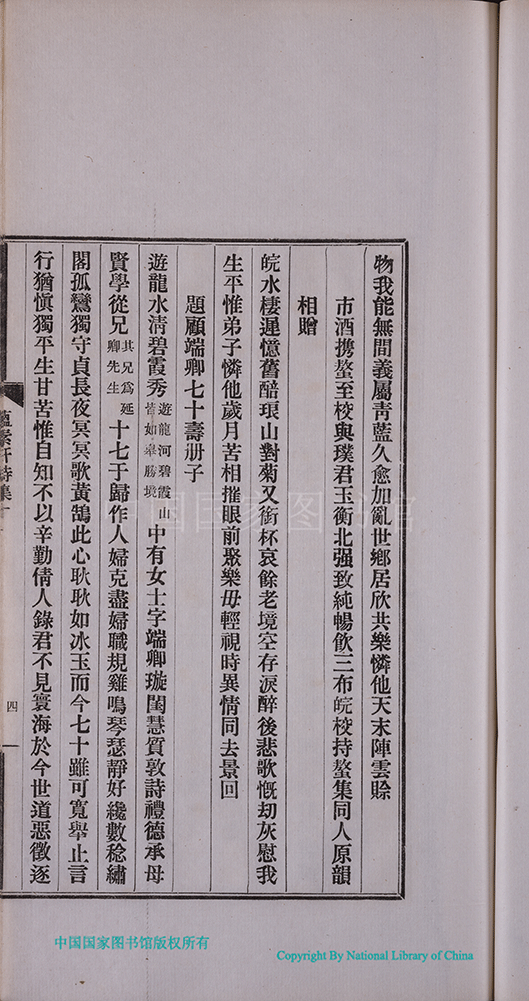 物我能無間義屬靑藍久愈加亂世鄉居欣共樂憐他天末陣雲賒
市酒攜螯至校與璞君玉衡北强致純暢飮三布皖校持螯集同人原韻
相贈
皖水棲遲憶舊醅琅山對菊又銜杯哀餘老境空存淚醉後悲歌慨刧灰慰我
生平惟弟子憐他歲月苦相摧眼前聚樂毋輕視時異情同去景回
題顧端卿七十壽册子
遊龍水淸碧霞秀遊龍河碧霞山皆如皋勝境中有女士字端卿璇閨慧質敦詩禮德承母
賢學從兄其兄爲延卿先生十七于歸作人婦克盡婦職規雞鳴琴瑟靜好纔數稔繡
閣孤鸞獨守貞長夜冥冥歌黃鵠此心耿耿如冰玉而今七十雖可寬舉止言
行猶愼獨平生甘苦惟自知不以辛勤倩人錄君不見寰海於今世道惡徵逐
蘊素軒詩集
四
中国国家图书馆
中国国家图书馆版权所有
Copyright By National Library of China